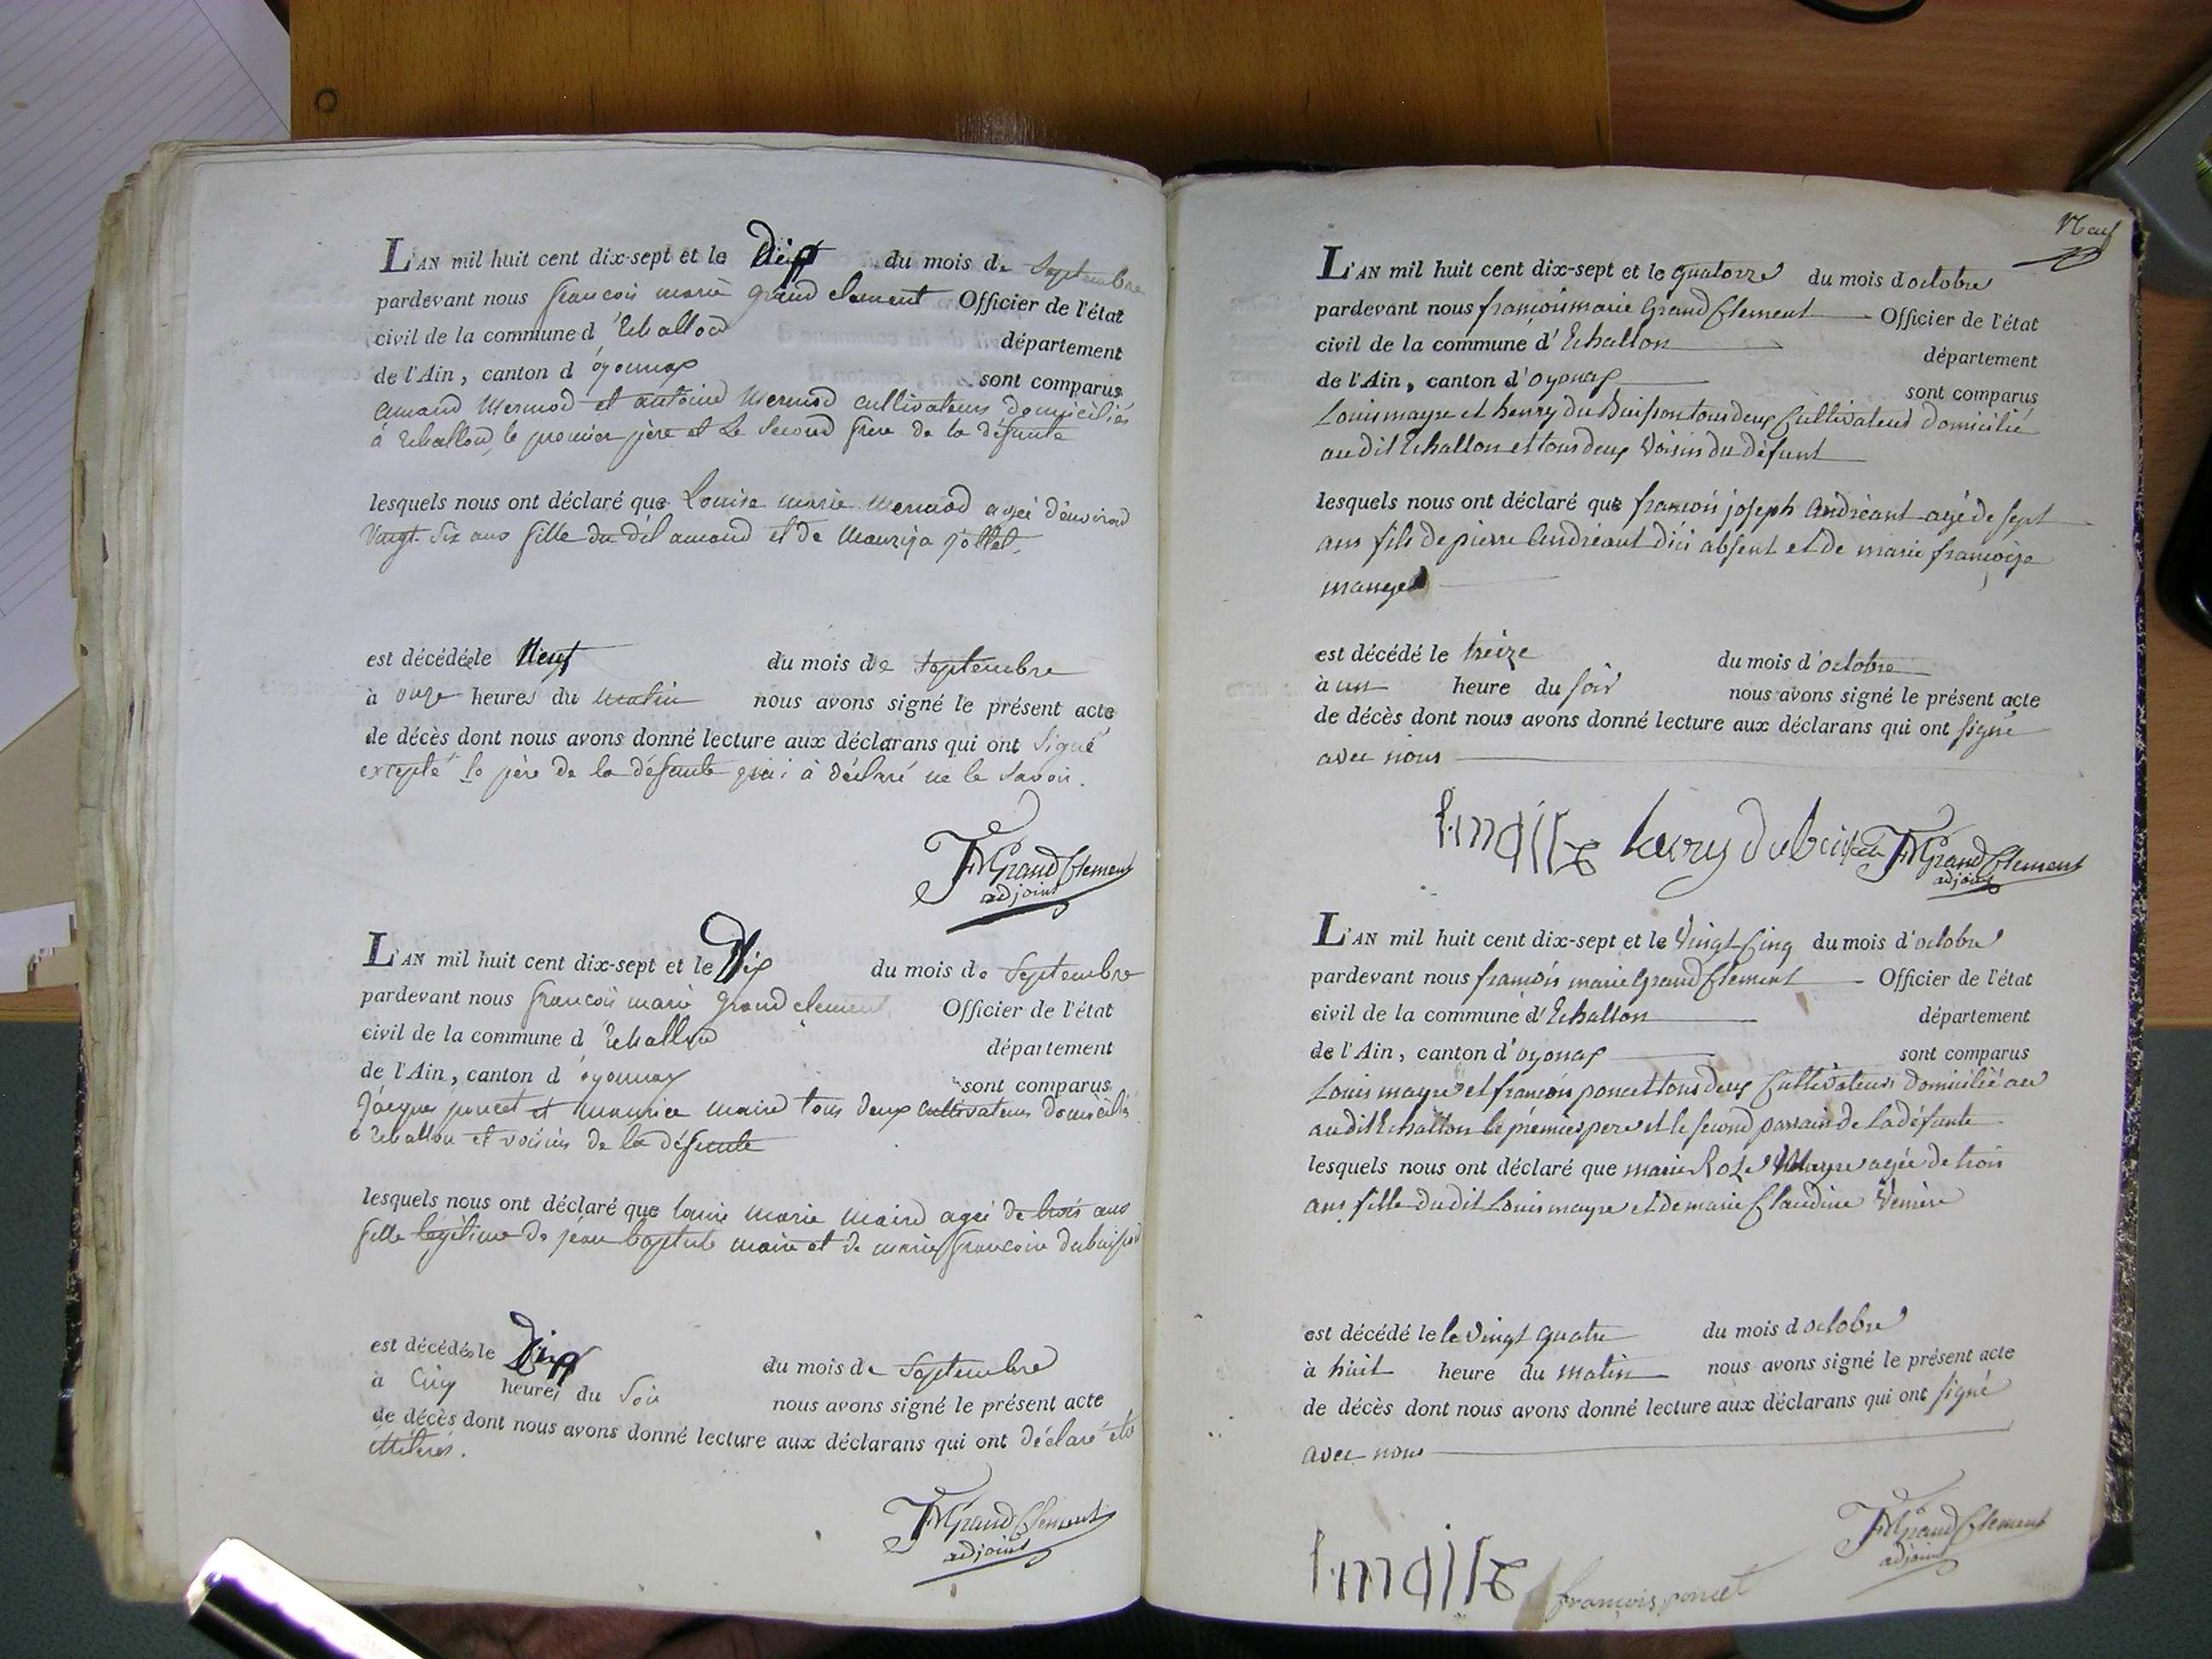 L'AN mil huit cent dix-sept et le Dix du mois de Septembre
pardevant nous françois marie grand clement Officier de l'état
civil de la commune d Echallon département
de l'Ain, canton d oyonnax sont comparus
amand Mermod et antoine Mermod cultivateurs domiciliés
à Echallon, le premier père et le second frère de la défunte
lesquels nous ont déclaré que Louise marie mermod agée d'environ
Vingt Six ans fille du dit amand et de jollet.
est décédée le Neuf du mois de Septembre
à onze heures du matin nous avons signé le présent acte
de décès dont nous avons donné lecture aux déclarans qui ont Signé
excepté le père de la défunte qui à déclaré ne le savoir.
FMGrandClement
adjoint
L'AN mil huit cent dix-sept et le Dix du mois de Septembre
pardevant nous françois marie grand clement Officier de l'état
civil de la commune d Echallon département
de l'Ain, canton d oyonnax sont comparus
Jacques poncet et maurice maire tous deux cultivateurs domiciliés
à Echallon et voisins de la défunte
lesquels nous ont déclaré que louise marie maire agée de trois ans
fille légitime de jean baptiste maire et de marie françoise dubuisson
est décédée le Dix du mois de Septembre
à Cinq heures du Soir nous avons signé le présent acte
de décès dont nous avons donné lecture aux déclarans qui ont déclaré etre
illiterés.
FMGrandClement
adjoint
Neuf
L'AN mil huit cent dix-sept et le quatorze du mois d octobre
pardevant nous françois marie Grand Clement Officier de l'état
civil de la commune d'Echallon département
de l'Ain, canton d'oyonax sont comparus
Louis mayre et henry du Buisson tous deux Cultivateurs Domicilié
au dit Echallon et tous deux Voisin du défunt
lesquels nous ont déclaré que françois joseph andréant agé de sept
ans fils de pierre andréant dici absent et de marie françoise
manger
est décédé le treize du mois d'octobre
à un heure du soir nous avons signé le présent acte
de décès dont nous avons donné lecture aux déclarans qui ont signé
avec nous
henry dubuisson FMGrandClement
adjoint
L'AN mil huit cent dix-sept et le Vingt Cinq du mois d'octobre
pardevant nous françois marie Grand Clement Officier de l'état
civil de la commune d'Echallon département
de l'Ain, canton d'oyonax sont comparus
Louis mayre et françois poncet tous deux Cultivateurs Domicilié au
au dit Echallon le premier pere et le second parrain de La défunte
lesquels nous ont déclaré que marie Roze Mayre agée de trois
ans fille du dit Louis mayre et de marie Claudine Verriere
est décédé le le Vingt quatre du mois d octobre
à huit heure du matin nous avons signé le présent acte
de décès dont nous avons donné lecture aux déclarans qui ont signé
avec nous
FMGrandClement
adjoint
françois poncet